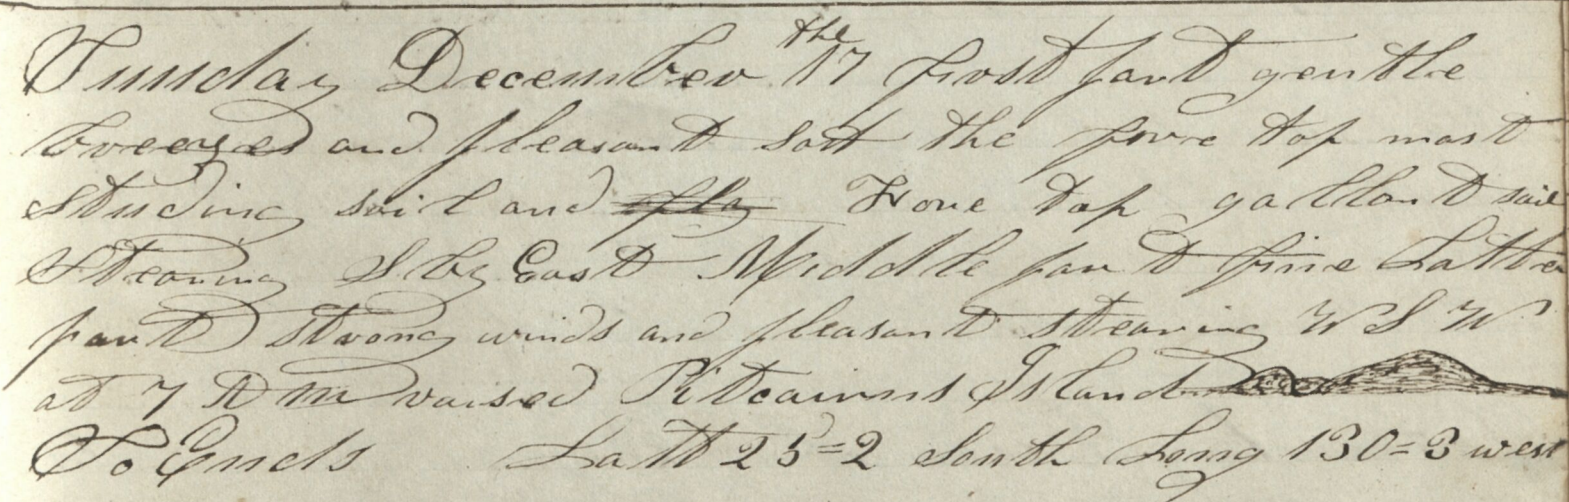 Tuesday December the 17 first part gentle
breezes and pleasant Sett the fore top mast
Studing sail and fly Fore top gallant sail
Stearing S by East Middle part fine Latter
part strong winds and pleasant stearing W S W
at 7 A m raised Pitcairns Island
So Ends Latt 25=2 South Long 130=3 west